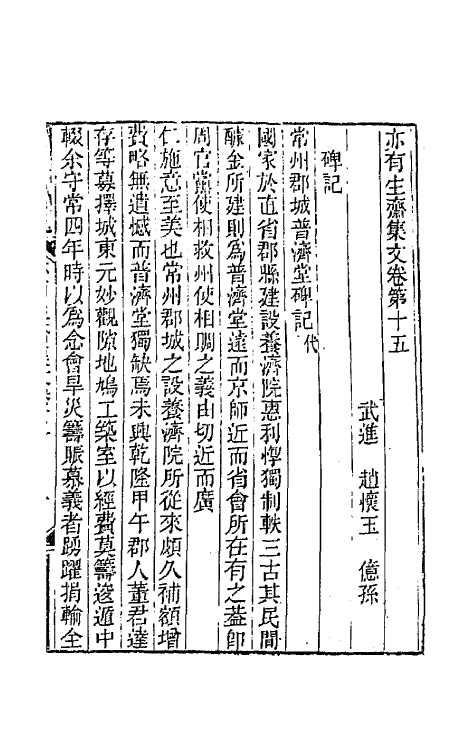 亦有生齋集文卷第十五
武進　趙懷玉　億孫
碑記
常州郡城普濟堂碑記代
國家於直省郡縣建設養濟院惠利惸獨制軼三古其民間
醵金所建則爲普濟堂遠而京師近而省會所在有之葢卽
周官黨使相救州使相賙之義由切近而廣
仁施意至美也常州郡城之設養濟院所從來頗久補額增
費略無遺憾而普濟堂獨缺焉未興乾隆甲午郡人董君達
存等募擇城東元妙觀隙地鳩工築室以經費莫籌逡遁中
輟余守常四年時以爲念會旱災籌賑慕義者踴躍捐輸全